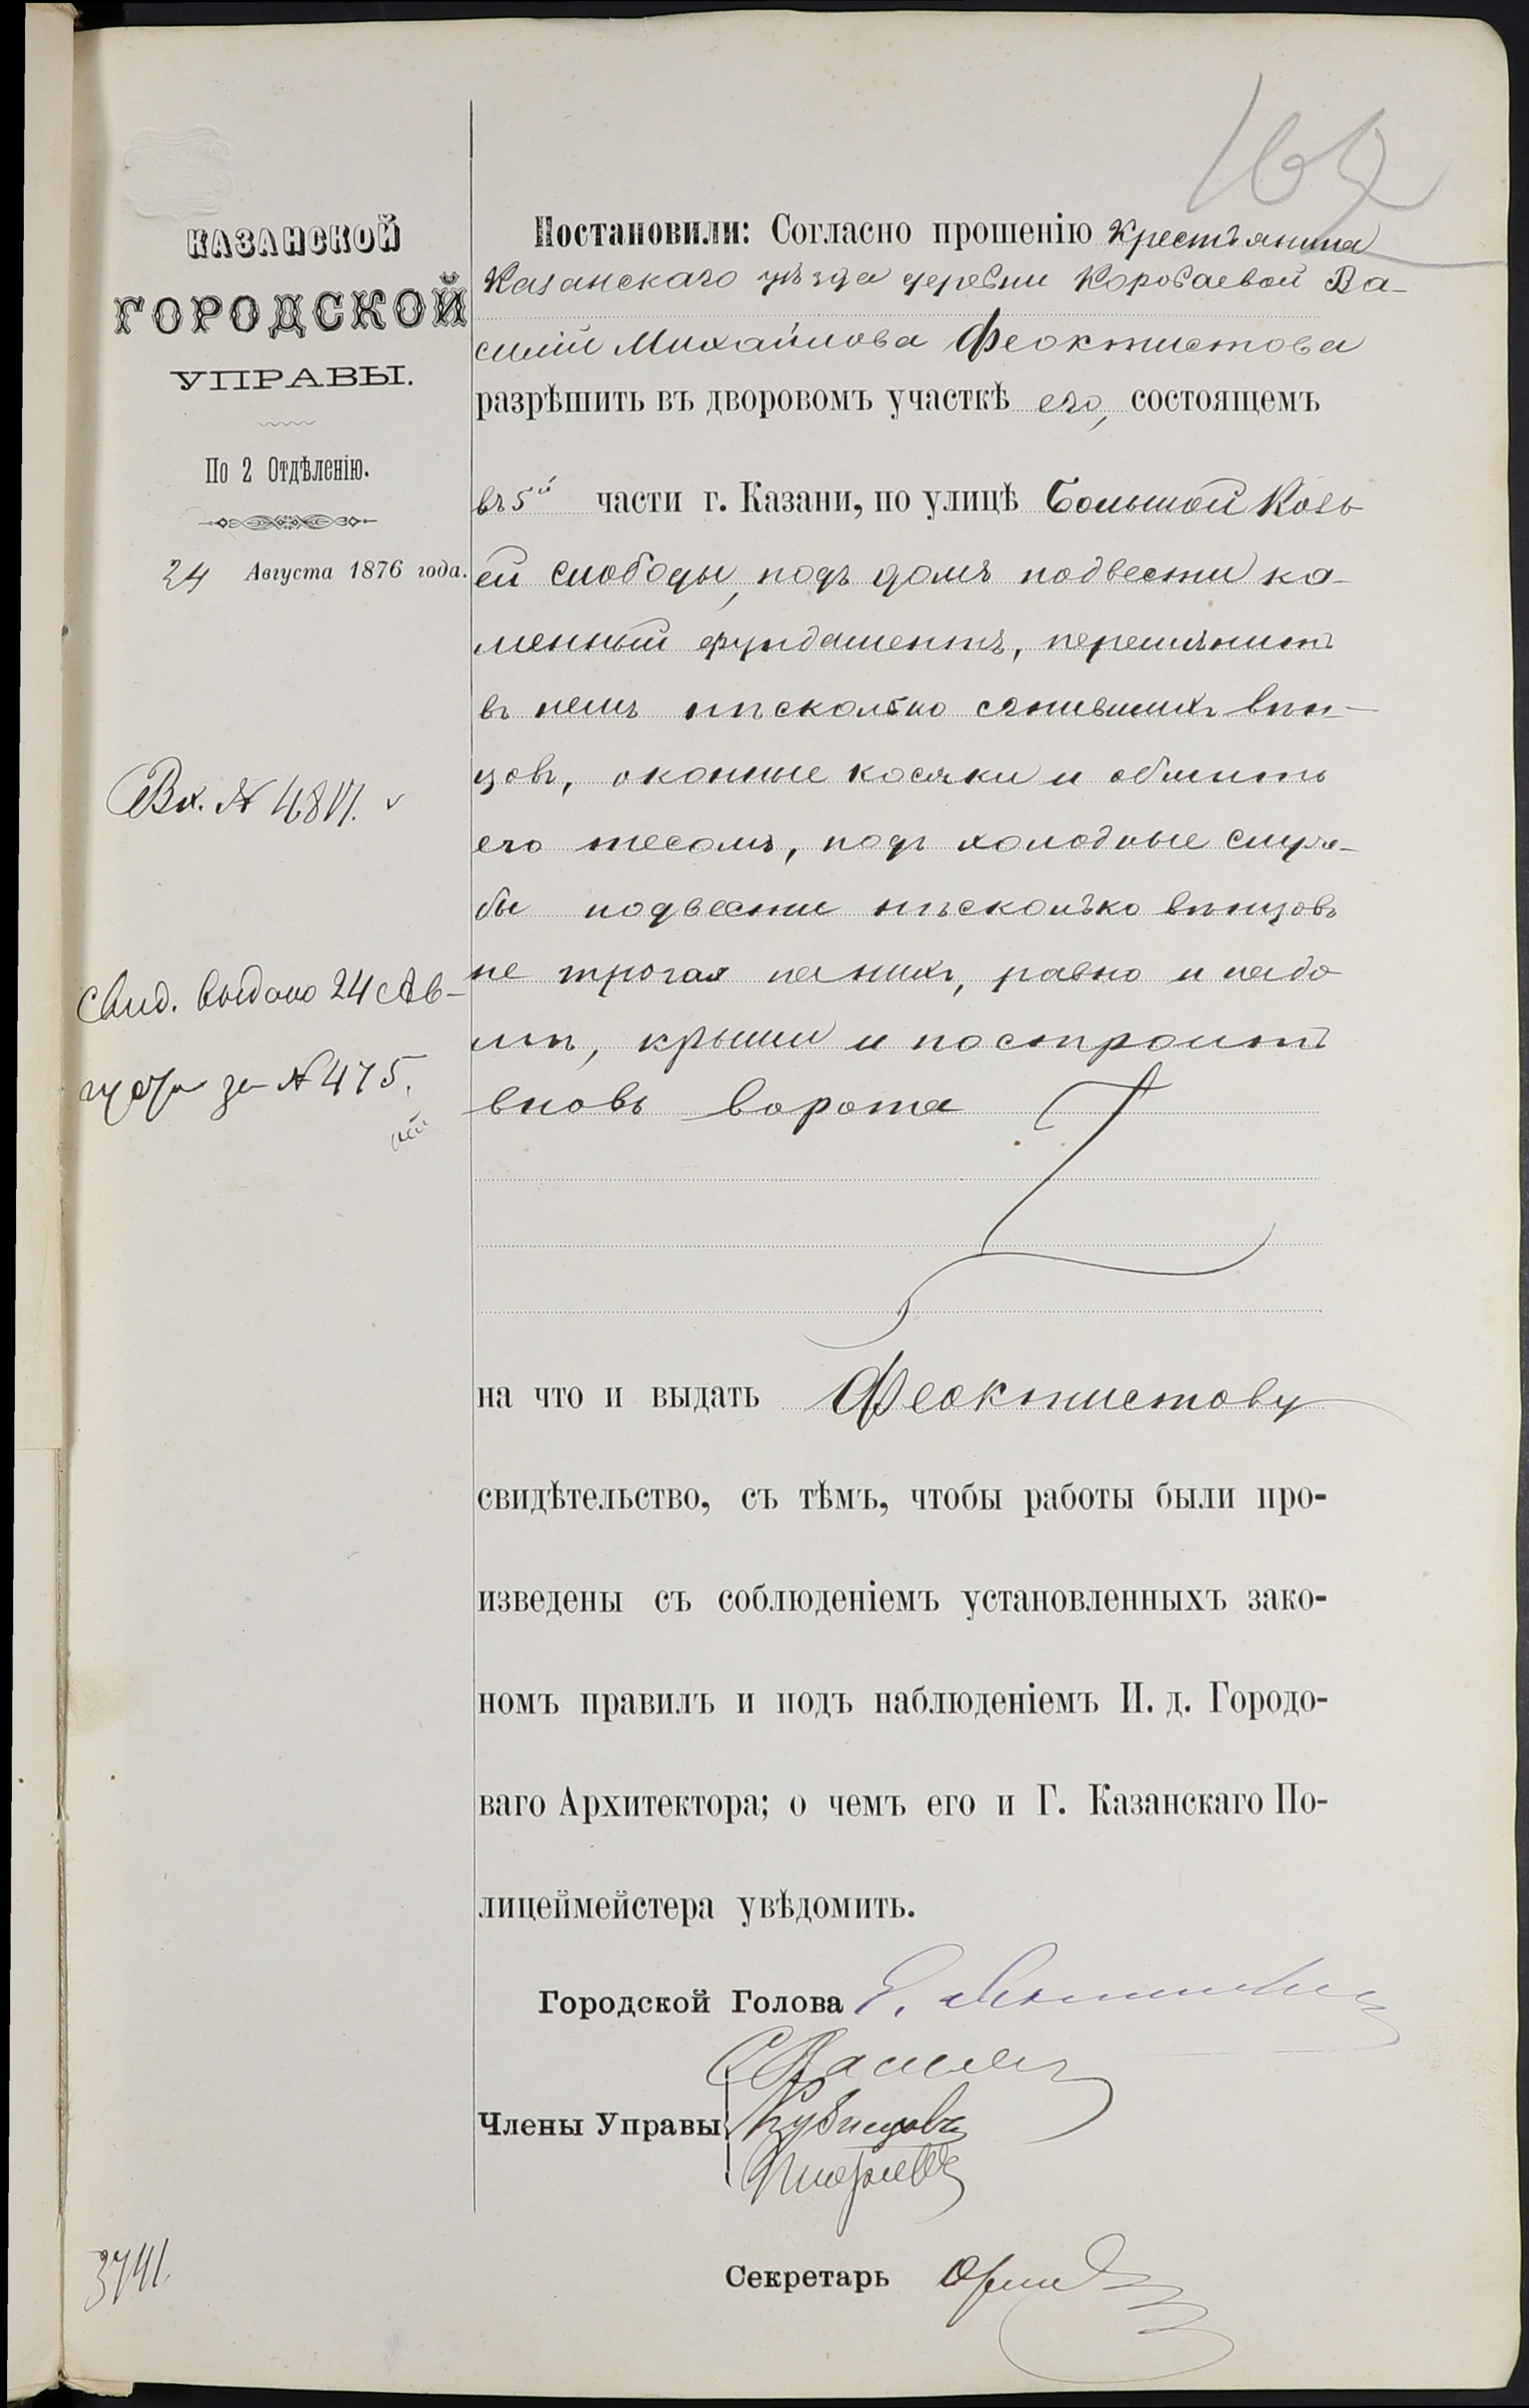 162
КАЗАНСКОЙ
ГОРОДСКОЙ
УПРАВЫ.
По 2 Отдѣленію.
24 Августа 1876 года.
Вх. № 4817.
Свид. выдано 24 Ав-
густа за № 475.
Постановили: Согласно прошенію Крестьянина
Казанскаго уѣзда деревни Коробаевой Ва-
силія Михайлова Феоктистова
разрѣшить въ дворовомъ участкѣ его, состоящемъ
въ 5й части г. Казани, по улицѣ Большой Козь-
ей слободы, подъ домъ подвести ка-
менный фундаментъ, перемѣнить
въ немъ нѣсколько сгнившихъ вѣн-
цовъ, оконные косяки и обшить
его тесомъ, подъ холодные служ-
бы подвести нѣсколько вѣнцовъ
не трогая на нихъ, равно и на до-
мѣ, крыши и построить
вновь ворота
на что и выдать Феоктистову
свидѣтельство, съ тѣмъ, чтобы работы были про-
изведены съ соблюденіемъ установленныхъ зако-
номъ правилъ и подъ наблюденіемъ И. д. Городо-
ваго Архитектора; о чемъ его и Г. Казанскаго По-
лицеймейстера увѣдомить.
Городской Голова
Члены Управы
Кузнецовъ
Секретарь
3741.